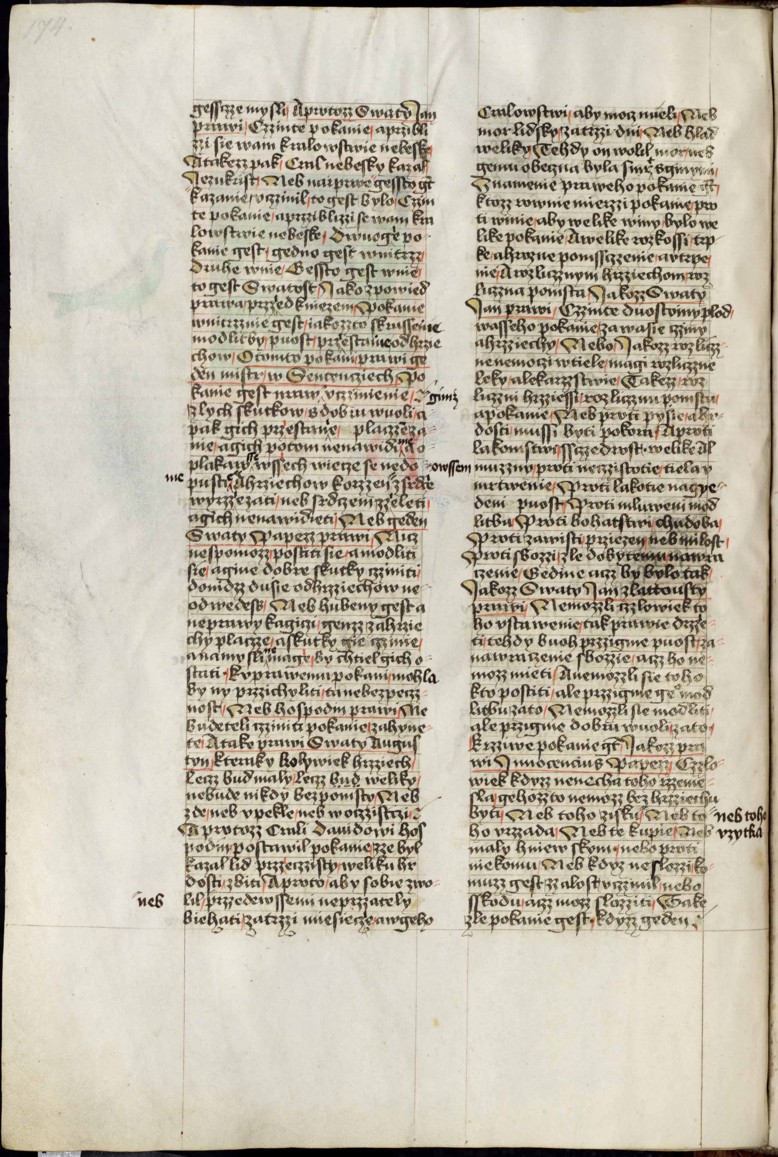 174.
gessizze mysli / Aprotozz Swaty Jan
prawi / Czzinte pokanie / aprzibli
zzi sie wam kralowstwie nebeske
Atakezz pak / Cral nebesky kazal
Jezukrist / Neb narprwe gessto gt
kazanie / vczinil / to gest bylo / Czzin
te pokanie / aprziblizzi se wam kra
lowstwie nebeske / Dwuoge po
kanie gest / gedno gest wnitrzz
Druhe wnie / Gessto gest wnie /
to gest Swatost / Jako zpowied
prawa przzed kniezem / Pokanie
wnitrznie gest / iakozzto skrussenie
modlitby / puost / przestanie odhrzie
chow / Otomto pokani / prawi ge
den mistr / w Sentencziech / Po
kanie gest mraw / vczinienie /
zlych skutkow / s dobru wuoli / a
pak gich przestanie / placzze za
nie / agich potom nenawidi / do
plakaw / wssech wiecze se nedo
pusti / Ahrziechow korzzen z srdcze
wyrzzezati / neb srdczem zzeleti /
agich nenawidieti / Neb geden
Swaty Papezz prawi / Nicz
nespomozz / postiti sie / amodliti
sie / agine dobre skutky czziniti /
donidzz dusie odhrzziechow ne
odwedess / Neb hubeny gest a
neprawy kagiczi / genzz zahrzie
chy placzze / askutky gie czzinie /
anamysli magie / by chtiel gich o
stati / Kuprawemu pokani / mohla
by ny przzichyliti / ta nebezpecz
nost / Neb hospodin prawi / Ne
budeteli czziniti pokanie / zahyne
te / Atake prawi Swaty Augus
tyn / kteruky kolywiek hrzziech /
lecz bud maly / lecz bud weliky /
nebude nikdy bez pomsty / Neb
zde / neb vpekle / neb woczzistczi /
A protozz Crali Dawidowi hos
podin postawil pokanie / zze byl
kazal lid przzeczzisty / weliku hr
dosti / zbiti / Aproto / aby sobie zwo
lil / przzedewssemi neprzzately
biehati / zatrzzi miesiecze / awgeho
ginz
owssem
nie
neb
Cralowstwi / aby moczz mieli / Neb
mor lidsky / zatrzzi dni / Neb hlad
weliky / Tehdy on wolil mor / neb
gemu obeczna byla smrt s ginymi /
Znamenie praweho pokanie gt /
ktozz rowmie mierzzi pokanie / pro
ti winie / aby welike winy / bylo we
like pokanie / Awelike rozkossi / trp
ke / ahrozne ponizzenie / a vtrpe
nie / A rozlicznym hrzziechom / roz
liczna pomsta / Jakozz Swaty
Jan prawi / Czzinte duostoiny plod /
wasseho pokanie / za wasie czziny
a hrzziechy / Nebo / Jakozz rozlicz
ne nemoczi wtiele / magi rozliczne
leky / alekarzstwie / Takezz roz
liczni hrzziessi / rozliczinu pomstu /
apokanie / Neb proti pysie / a hr
dosti / mussi byti pokora / Aproti
lakomstwi / sszczedrost / welike Al
muzzny / proti neczzistotie / tiela v
mrtwenie / Proti lakotie / nagye
deni / puost / Proti mluweni / mod
litba / Proti bohatstwi / chudoba /
Proti zawisti / przizen / neb milost
Proti sbozzi / zle dobytemu / nawra
czenie / Gedine aczz by bylo tak /
Jakozz Swaty Jan zlattousty
prawi / Nemozzli czlowiek to
ho vstawenie / tak prawie drzze
ti / tehdy buoh przzigme puost / za
nawraczenie sbozzie / aczz ho ne
mozz mieti / Anemozzli sie toho
kto postiti / ale przzigme ge° mod
litbu zato / Nemozzli sie modliti /
ale przigme dobru wuoli / zato /
Krziwe pokanie gt / Jakozz pra
wi / Innocencius Papezz / Czzlo
wiek kdyzz nenecha toho rzzemie
sla / gehozzto nemozz bez hrzziechu
byti / Neb toho zisku / Neb to
ho vrzzada / Neb te kupie / Neb
maly hniew skym / nebo proti
niekomu / Neb kdyz ne slozzi / ko
muzz gest zzalost vczzinil / nebo
sskodu / aczz mozz slozziti / Take
zle pokanie gest / kdyzz geden /
neb toho
vzytka